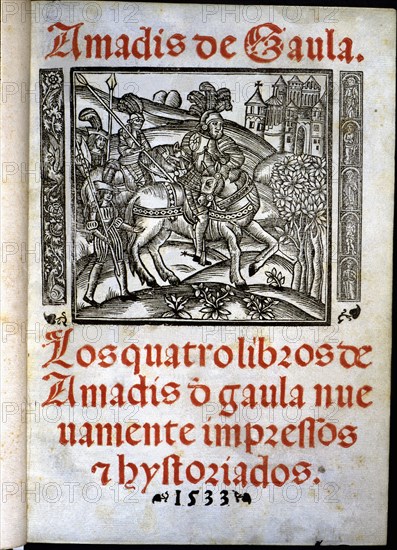 Amadis de Gaula.
Los quatro libros de
Amadis ď gaula nue
uamente impressos
⁊ hystoriados.
1533
PHOTO 12